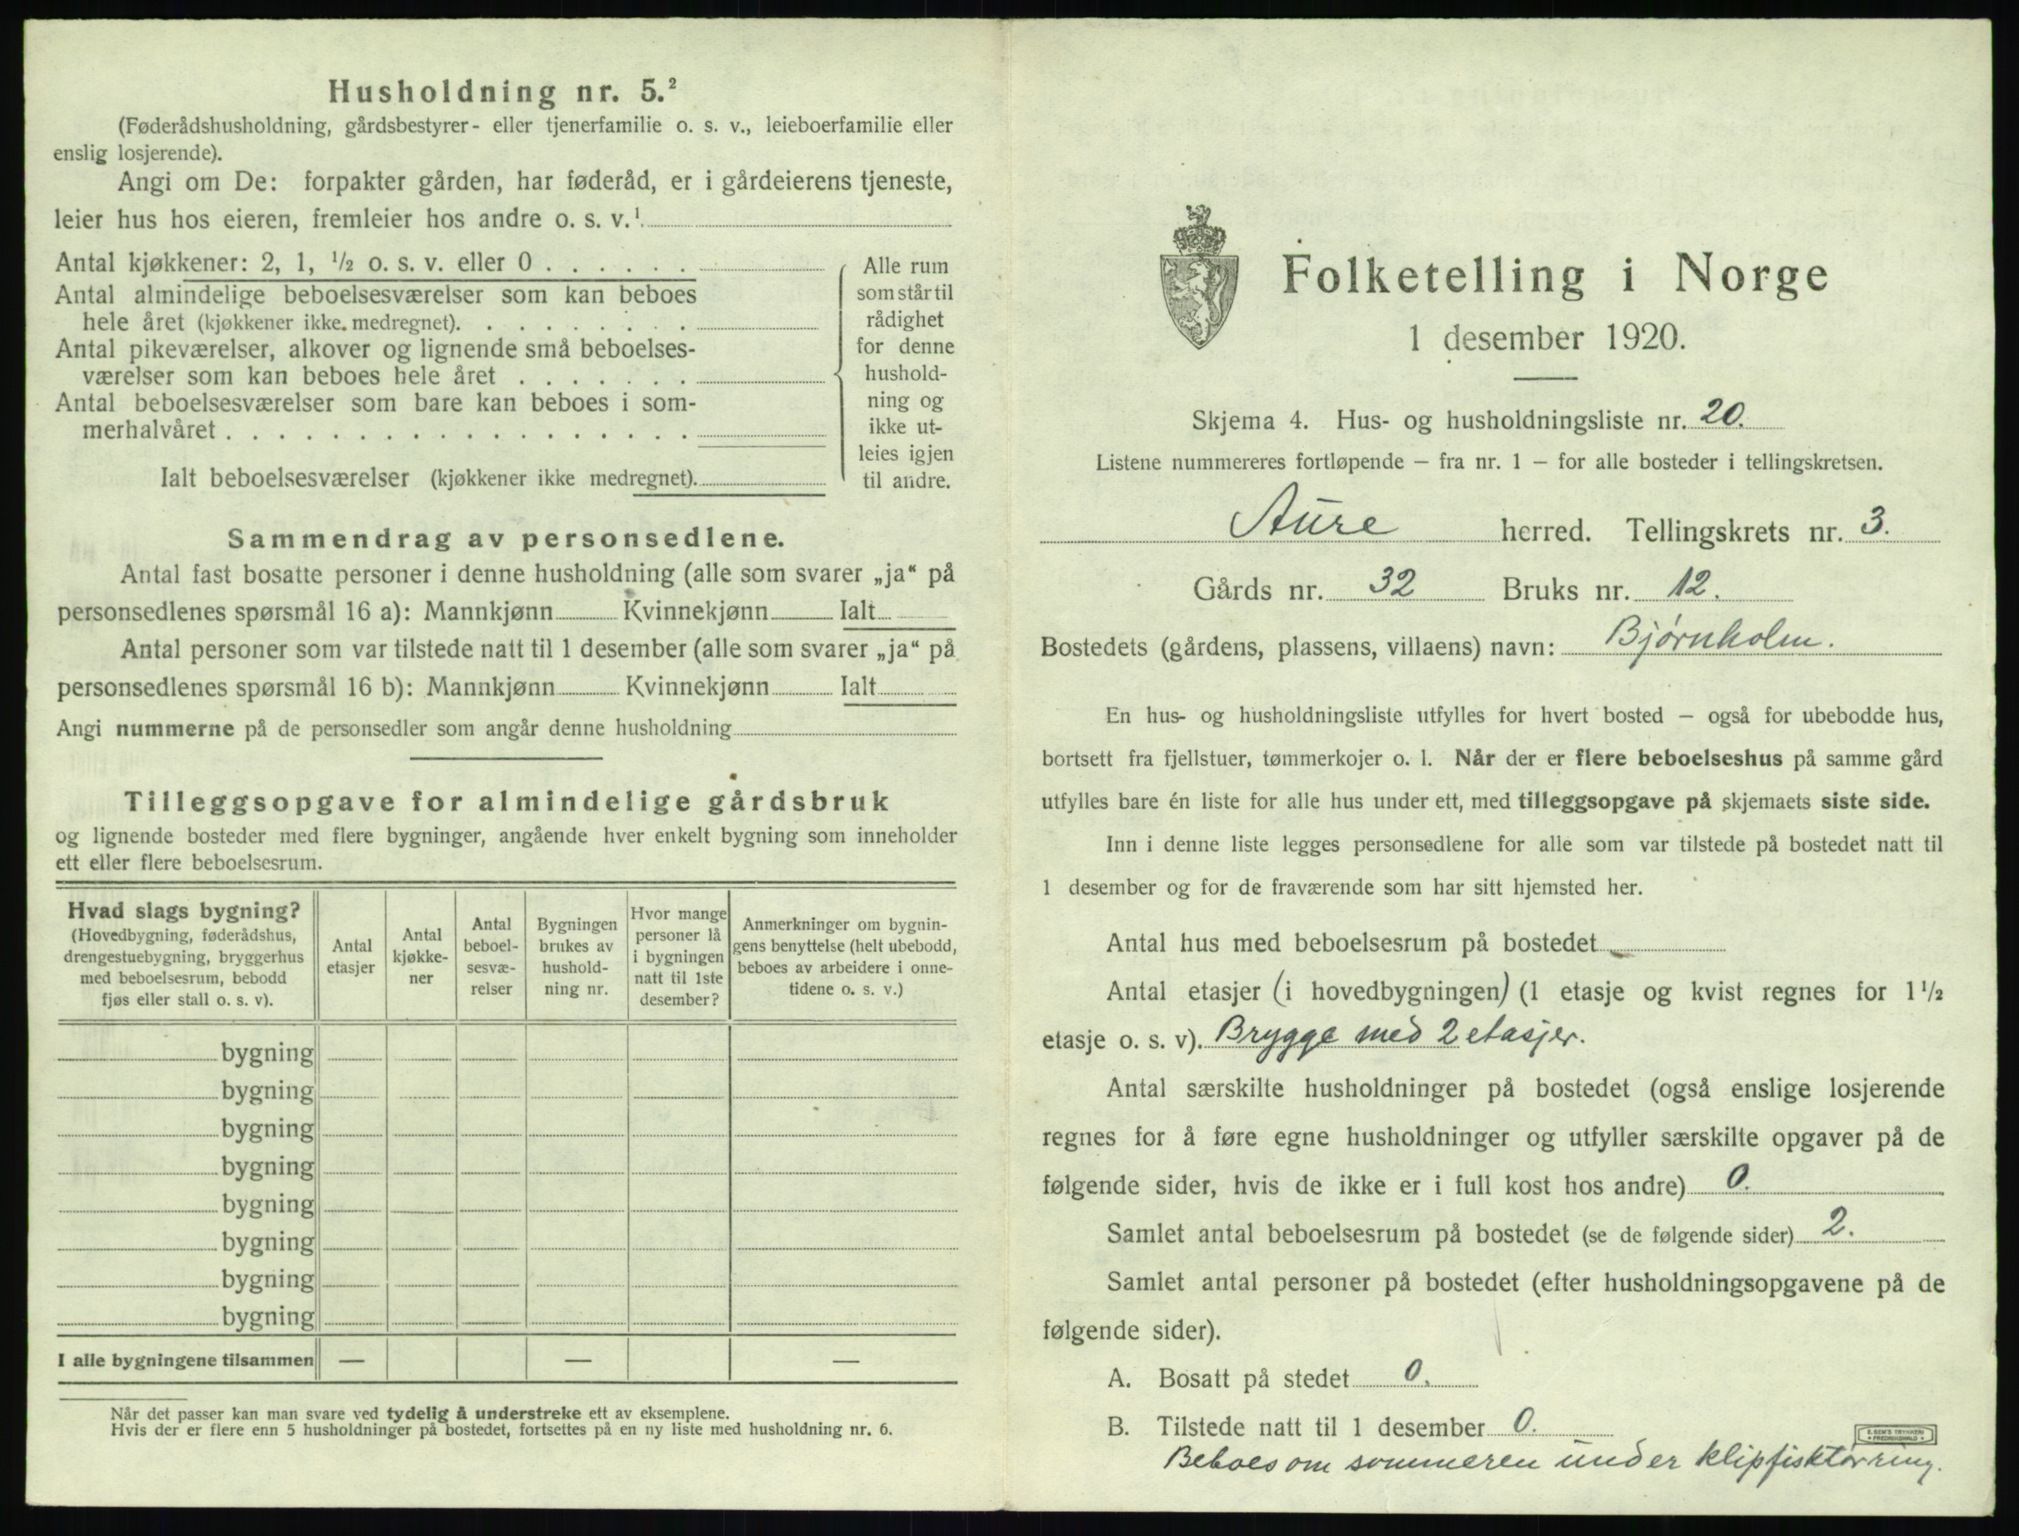 Husholdning nr. 5.²
(Føderådshusholdning, gårdsbestyrer- eller tjenerfamilie o. s. v., leieboerfamilie eller
enslig losjerende).
Angi om De: forpakter gården, har føderåd, er i gårdeierens tjeneste,
leier hus hos eieren, fremleier hos andre o. s. v.¹
Antal kjøkkener: 2, 1, ½ o. s. v. eller 0 . . . . . .
Antal almindelige beboelsesværelser som kan beboes
hele året (kjøkkener ikke medregnet). . . . . . . . .
Antal pikeværelser, alkover og lignende små beboelses-
værelser som kan beboes hele året . . . . . . .
Antal beboelsesværelser som bare kan beboes i som-
merhalvåret . . . . . . . . . . . . . . . . . .
Ialt beboelsesværelser (kjøkkener ikke medregnet).
Alle rum
som står til
rådighet
for denne
hushold-
ning og
ikke ut-
leies igjen
til andre.
Sammendrag av personsedlene.
Antal fast bosatte personer i denne husholdning (alle som svarer „ja“ på
personsedlenes spørsmål 16 a): Mannkjønn Kvinnekjønn Ialt
Antal personer som var tilstede natt til 1 desember (alle som svarer „ja“ på
personsedlenes spørsmål 16 b): Mannkjønn Kvinnekjønn Ialt
Angi nummerne på de personsedler som angår denne husholdning
Tilleggsopgave for almindelige gårdsbruk
og lignende bosteder med flere bygninger, angående hver enkelt bygning som inneholder
ett eller flere beboelsesrum.
Hvad slags bygning?
(Hovedbygning, føderådshus,
drengestuebygning, bryggerhus
med beboelsesrum, bebodd
fjøs eller stall o. s. v).
Antal
etasjer
Antal
kjøkke-
ner
Antal
beboel-
sesvæ-
relser
Bygningen
brukes av
hushold-
ning nr.
Hvor mange
personer lå
i bygningen
natt til 1ste
desember?
Anmerkninger om bygnin-
gens benyttelse (helt ubebodd,
beboes av arbeidere i onne-
tidene o. s. v.)
bygning
bygning
bygning
bygning
bygning
bygning
bygning
bygning
I alle bygningene tilsammen — — —
Når det passer kan man svare ved tydelig å understreke ett av eksemplene.
Hvis der er flere enn 5 husholdninger på bostedet, fortsettes på en ny liste med husholdning nr. 6.
Folketelling i Norge
1 desember 1920.
Skjema 4. Hus- og husholdningsliste nr. 20.
Listene nummereres fortløpende – fra nr. 1 – for alle bosteder i tellingskretsen.
Aure herred. Tellingskrets nr. 3.
Gårds nr. 32 Bruks nr. 12.
Bostedets (gårdens, plassens, villaens) navn: Bjørnholm.
En hus- og husholdningsliste utfylles for hvert bosted – også for ubebodde hus,
bortsett fra fjellstuer, tømmerkojer o. l. Når der er flere beboelseshus på samme gård
utfylles bare én liste for alle hus under ett, med tilleggsopgave på skjemaets siste side.
Inn i denne liste legges personsedlene for alle som var tilstede på bostedet natt til
1 desember og for de fraværende som har sitt hjemsted her.
Antal hus med beboelsesrum på bostedet
Antal etasjer (i hovedbygningen) (1 etasje og kvist regnes for 1½
etasje o. s. v). Brygge med 2 etasjer.
Antal særskilte husholdninger på bostedet (også enslige losjerende
regnes for å føre egne husholdninger og utfyller særskilte opgaver på de
følgende sider, hvis de ikke er i full kost hos andre) 0.
Samlet antal beboelsesrum på bostedet (se de følgende sider) 2.
Samlet antal personer på bostedet (efter husholdningsopgavene på de
følgende sider).
A. Bosatt på stedet 0.
B. Tilstede natt til 1 desember 0.
Beboes om sommeren under klipfisktørring.